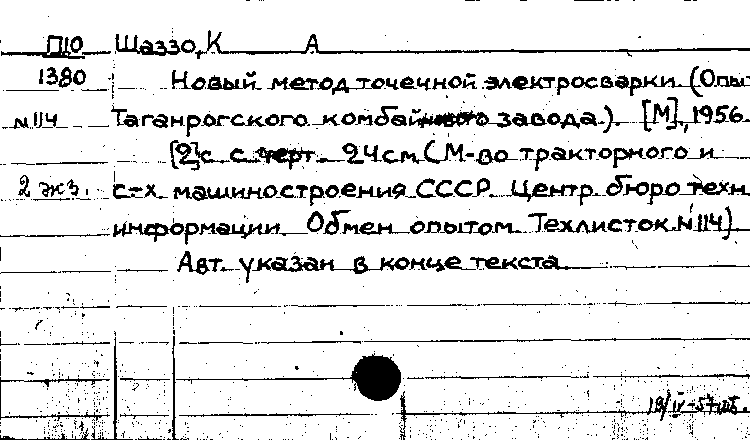 П10 Шаззо, К А
1380 Новый метод точечной электросварки. (Опы
№114 Таганрогского комбайнового завода.). [М]., 1956.
[2]с с черт. 24см. (М-во тракторного и
2 экз. с-х. машиностроения СССР. Центр. бюро техн.
информации. Обмен опытом. Техлисток №114).
Авт. указан в конце текста.
19/IV-57